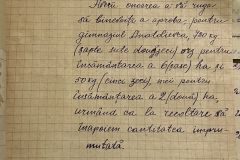 onoarea a vă ruga
să binevoiți a aproba, pentru
gimnaziul 720 kg
(șapte sute douăzeci) orz pentru
însămânțarea a 6 (șase) ha și
50 kg (cinci zeci) mei pentru
însămânțarea a 2 (două) ha,
urmând ca la recoltare să
înapoiem cantitatea impru-
mutată.